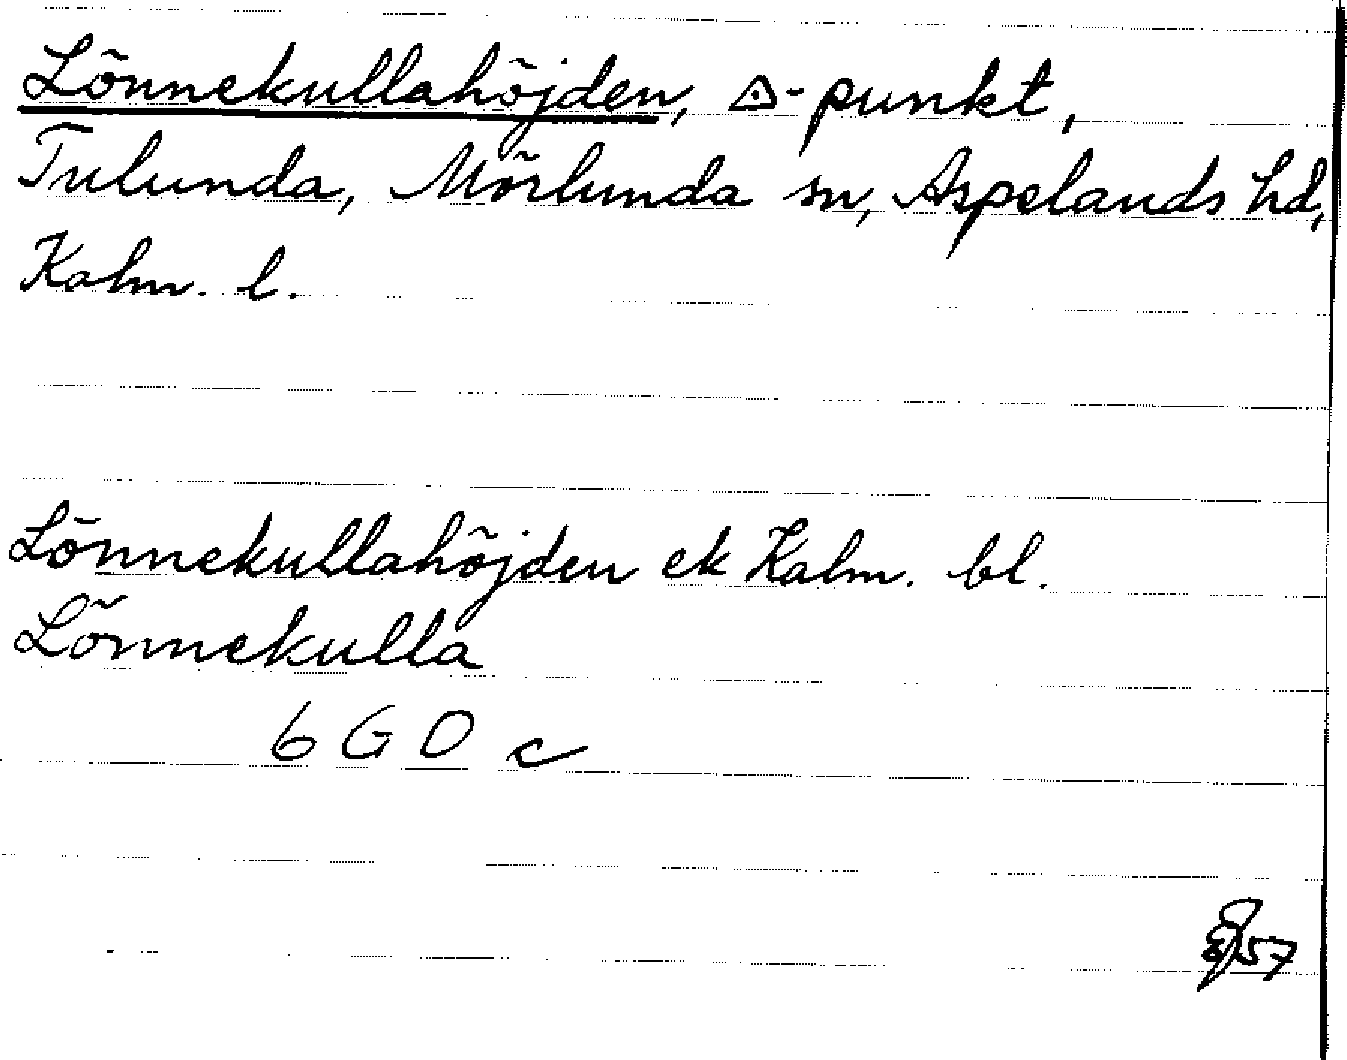 Lönnekullahöjden, △-punkt,
Tulunda, Mörlunda sn, Aspelands hd,
Kalm. l.
Lönnekullahöjden ek Kalm. bl.
Lönnekulla
6 G 0 c
57